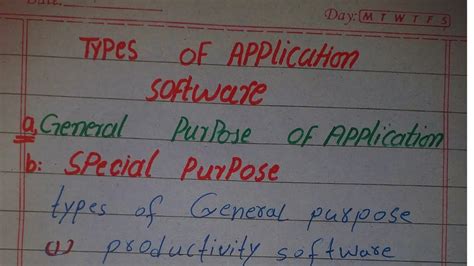 Date:
Day: M T W T F S
Types OF APPlication
Software
a, General PurPose OF APPlication
b: SPecial PurPose
types of General purpose
(1) productivity software